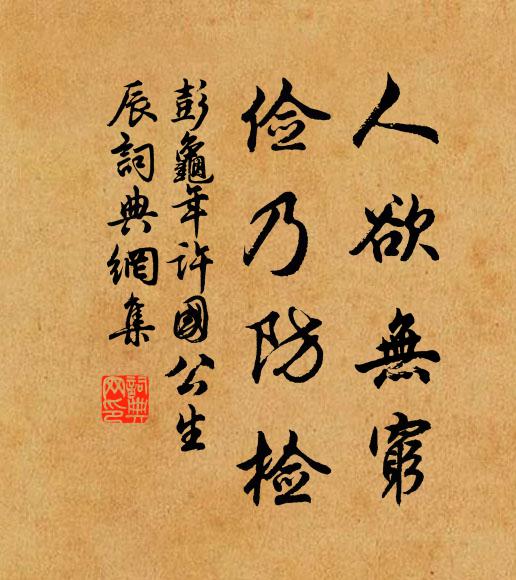 人欲無窮
俭乃防检
彭龜年许國公生
辰詞典網集
詞典
网印